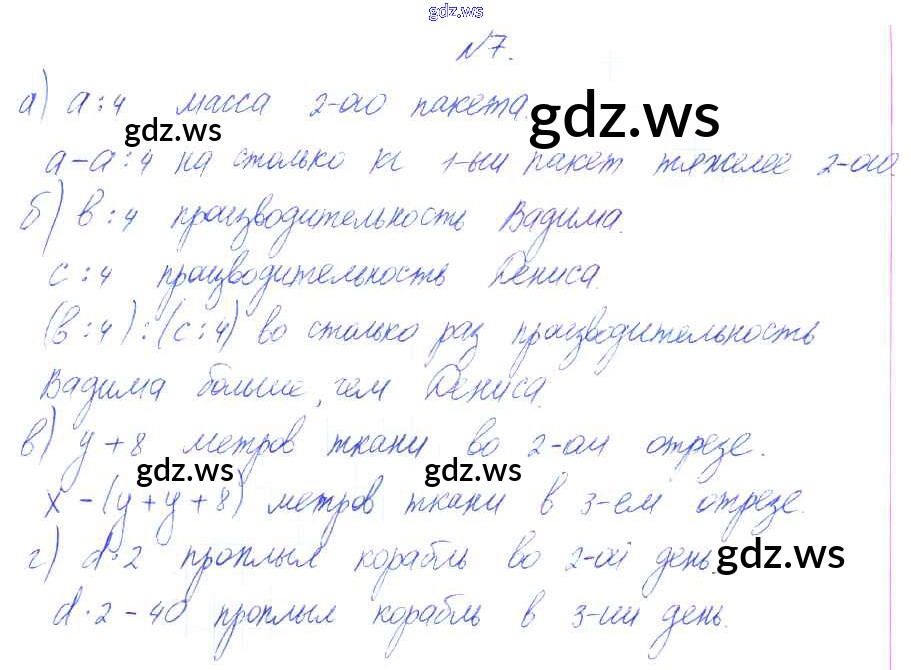 gdz.ws
№7.
а) a:4 масса 2-ого пакета.
gdz.ws
gdz.ws
a-a:4 на столько кг 1-ый пакет тяжелее 2-ого.
б) в:4 производительность Вадима.
с:4 производительность Дениса.
(в:4):(с:4) во столько раз производительность
Вадима больше, чем Дениса.
в) y+8 метров ткани во 2-ом отрезе.
gdz.ws
gdz.ws
x-(y+y+8) метров ткани в 3-ем отрезе.
г) d·2 проплыл корабль во 2-ой день.
gdz.ws
d·2-40 проплыл корабль в 3-ий день.